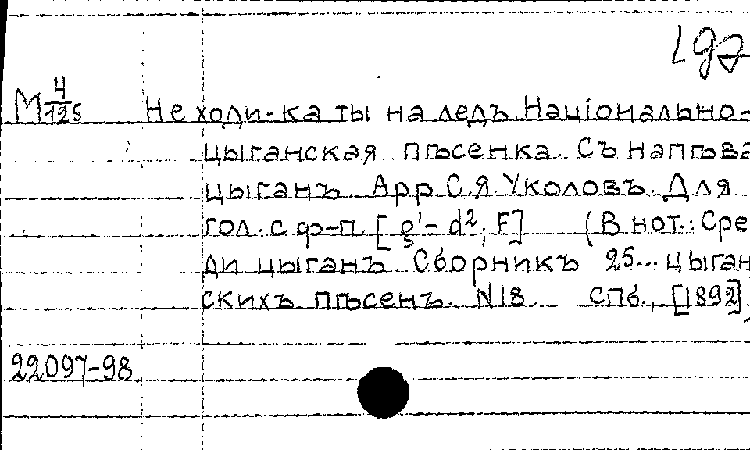 197
М 4/125 Не ходи-ка ты на ледъ. Національно-
цыганская пѣсенка. Съ напѣва
цыганъ. Арр. С.Я. Уколовъ. Для
гол. с ф-п. [g¹- d², F] (В нот.: Сре-
ди цыганъ. Сборникъ 25... цыган-
скихъ пѣсенъ. N18. СПб., [1892]
22097-98